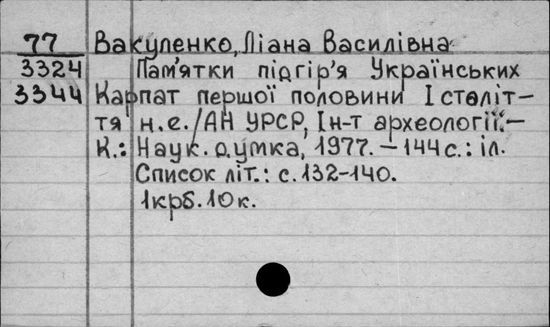 77 Вакуленко, Ліана Василівна
3324 Пам'ятки підгір'я Українських
3344 Карпат першої половини I століт-
тя н.е./АН УРСР, Ін-т археології.—
К.: Наук. думка, 1977. — 144с.: іл.
Список літ.: с. 132-140.
1крб. 10к.